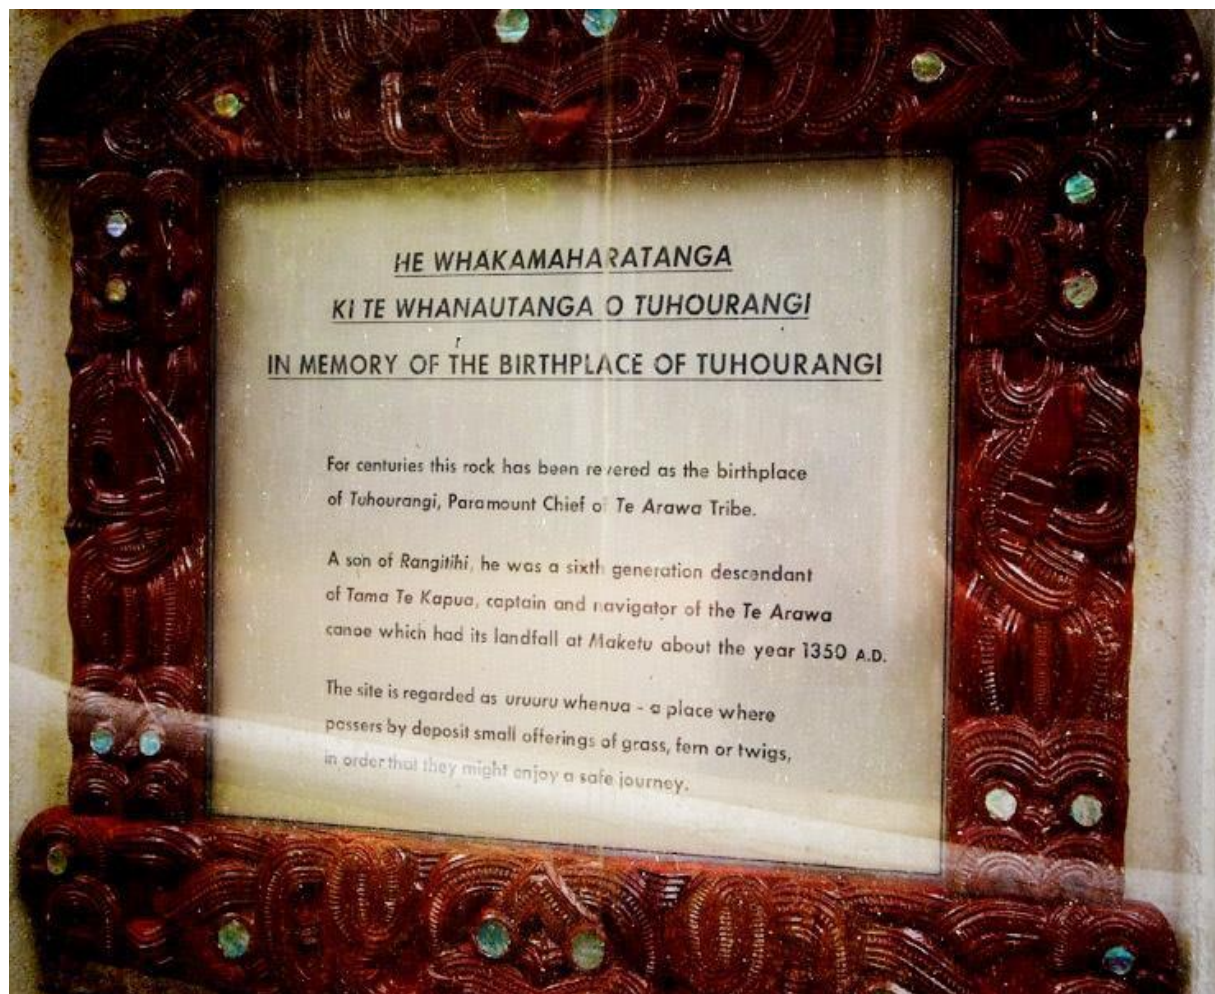 HE WHAKAMAHARATANGA
KI TE WHANAUTANGA O TUHOURANGI
IN MEMORY OF THE BIRTHPLACE OF TUHOURANGI
For centuries this rock has been revered as the birthplace
of Tuhourangi, Paramount Chief of Te Arawa Tribe.
A son of Rangitihi, he was a sixth generation descendant
of Tama Te Kapua, captain and navigator of the Te Arawa
canoe which had its landfall at Maketu about the year 1350 A.D.
The site is regarded as uruuru whenua - a place where
passers by deposit small offerings of grass, fern or twigs,
in order that they might enjoy a safe journey.